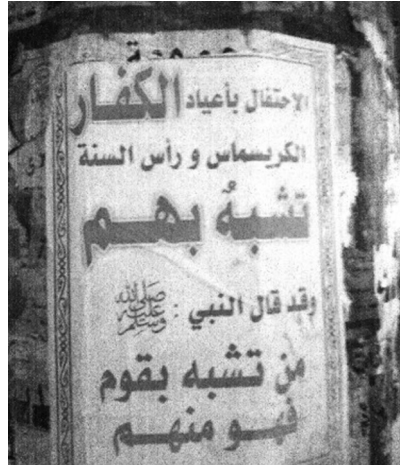 الإحتفال بأعياد الكفار
الكريسماس و رأس السنة
تشبهُ بهم
وقد قال النبي : ﷺ
من تشبه بقوم
فهو منهم